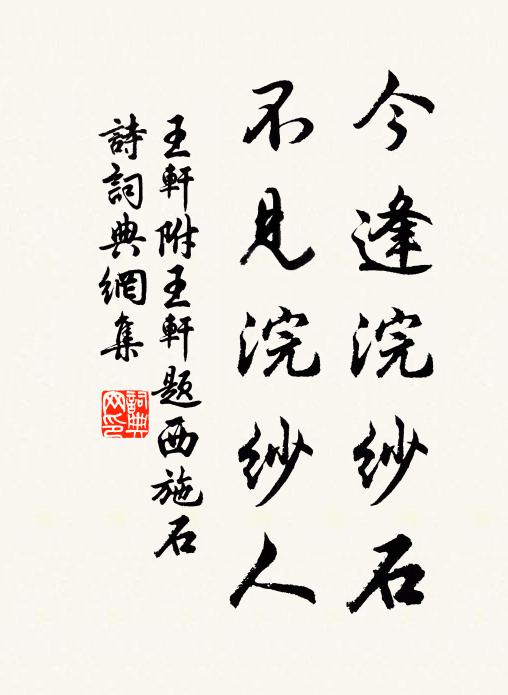 今逢浣紗石
不見浣紗人
王軒附王軒題西施石
詩詞典網集
詞典网印